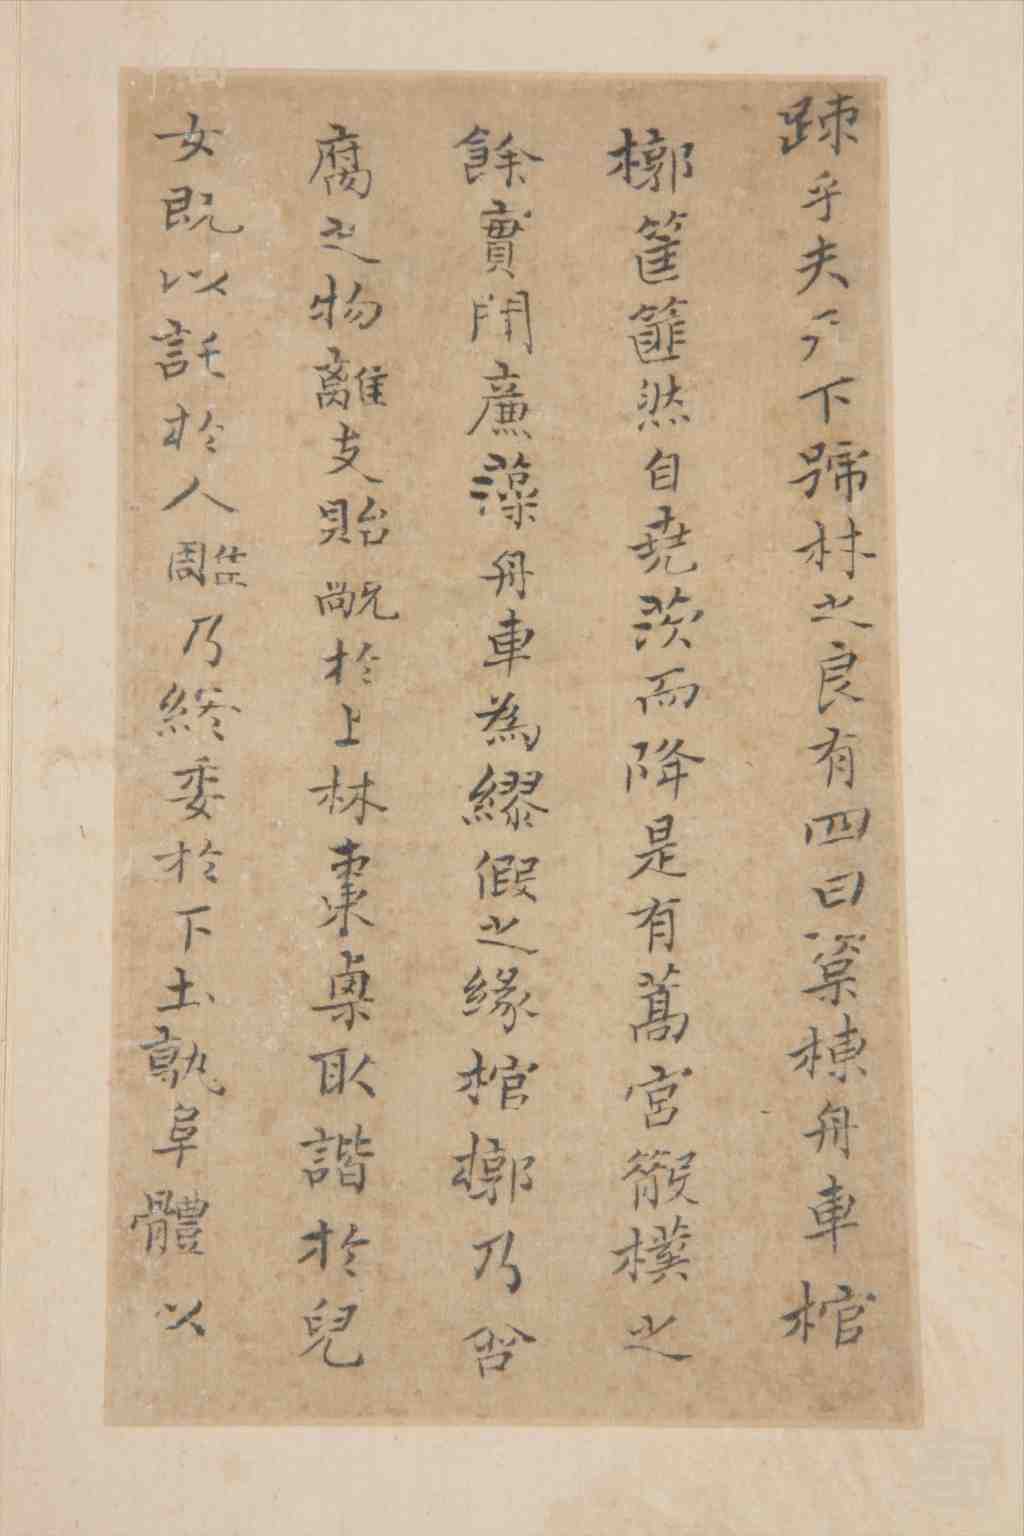 踈乎夫下號林之良有四曰梁棟舟車棺
槨筐篚然自堯茨而降是有蒿宮樸之
餘實閈廉藻舟車為繆假之緣棺槨乃
腐之物離支貽於上林棗㮚取諧於兒
女既以託於人乃終委於下土孰阜體以